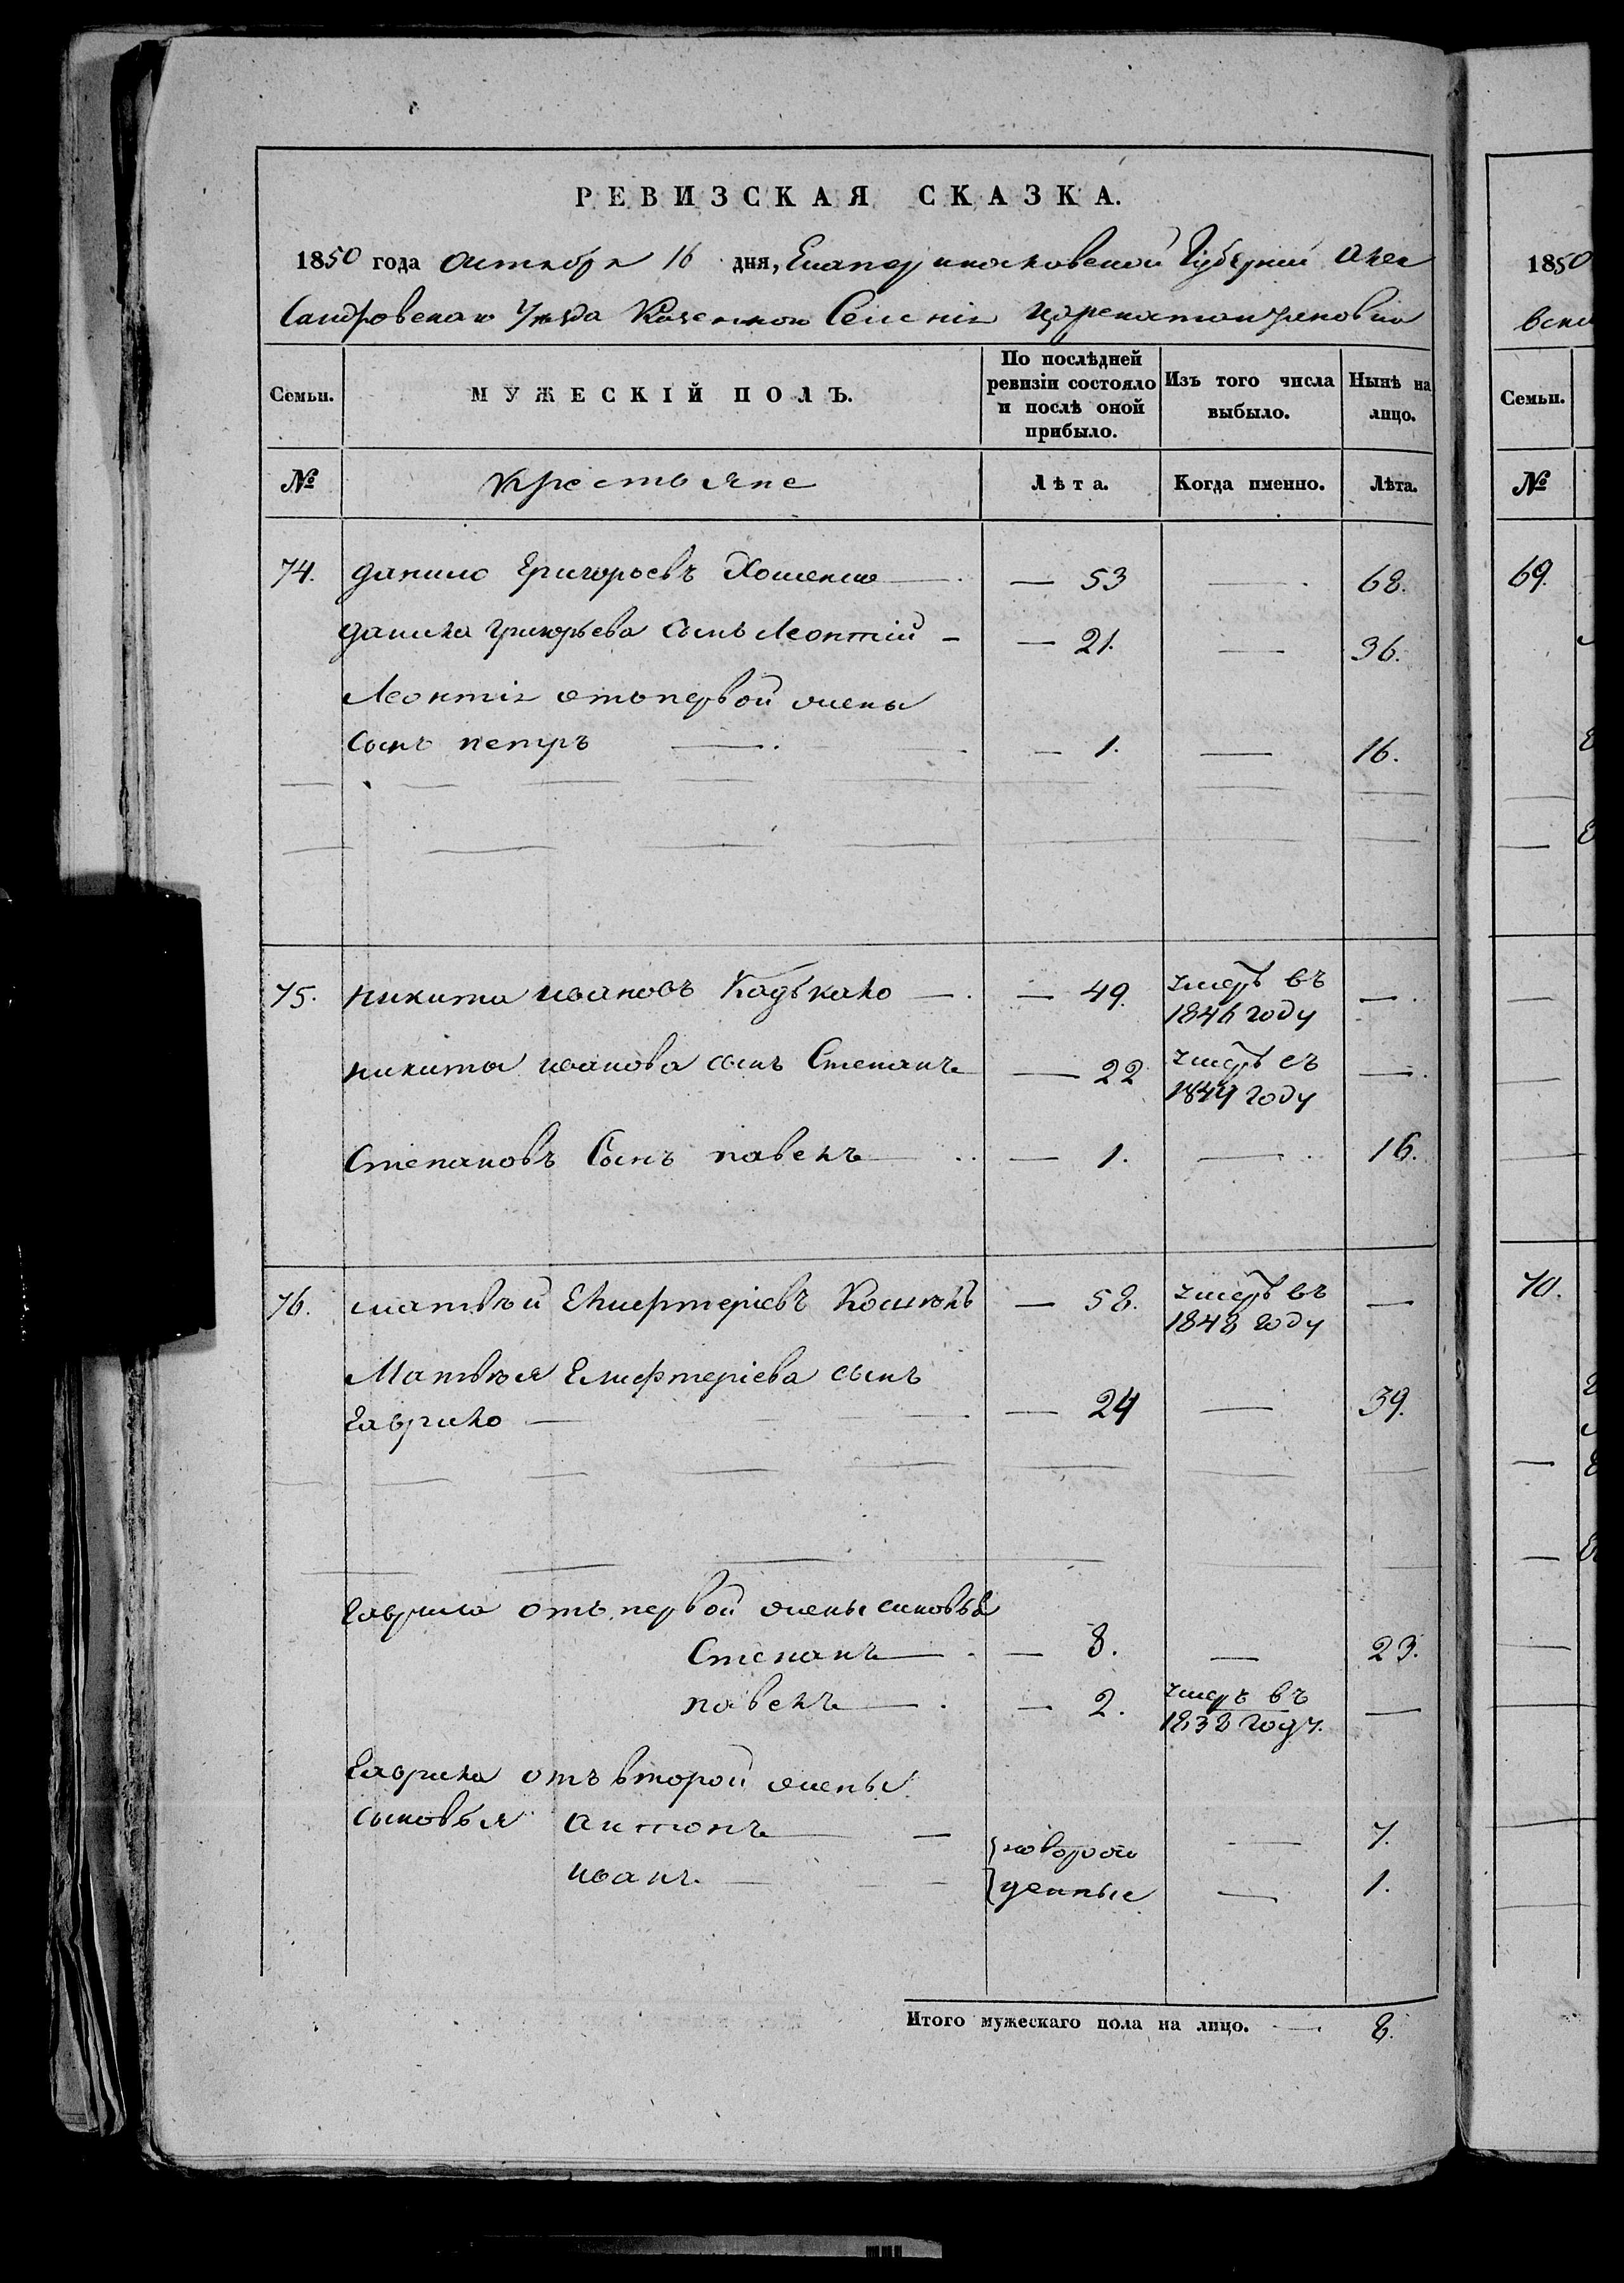 РЕВИЗСКАЯ СКАЗКА.
1850 года Октября 16 дня, Екатеринославской Губернии Алек
сандровскаго Уѣзда Казенного Селенія Цареконстантиновки
Семьи. МУЖЕСКІЙ ПОЛЪ. По послѣдней ревизіи состояло и послѣ оной прибыло. Изъ того числа выбыло. Нынѣ на лицо.
№ Крестьяне Лѣта. Когда именно. Лѣта.
74. Данило Григорьевъ — 53 — 68.
Данила Григорьева сынъ Леонтій — 21. — 36.
Леонтія отъ первой жены
сынъ Петръ — 1. — 16.
75. Никита Ивановъ Кадькало — 49. умеръ въ 1846 году —
Никиты Иванова сынъ Степанъ — 22 умеръ въ 1849 году —
Степановъ Сынъ Павелъ — 1. — 16.
76. Матвѣй Елиефтеріевъ — 58. умеръ въ 1848 году —
Матвѣя Елиефтеріева сынъ
Гаврило — 24 — 39.
Гаврила отъ первой жены сыновья
Степанъ — 8. — 23.
Павелъ — 2. умеръ въ 1838 году. —
Гаврила отъ второй жены
сыновья Антонъ — новорож — 7.
Иванъ — денные — 1.
Итого мужескаго пола на лицо. — 8.
1850
Семьи.
№
69.
70.